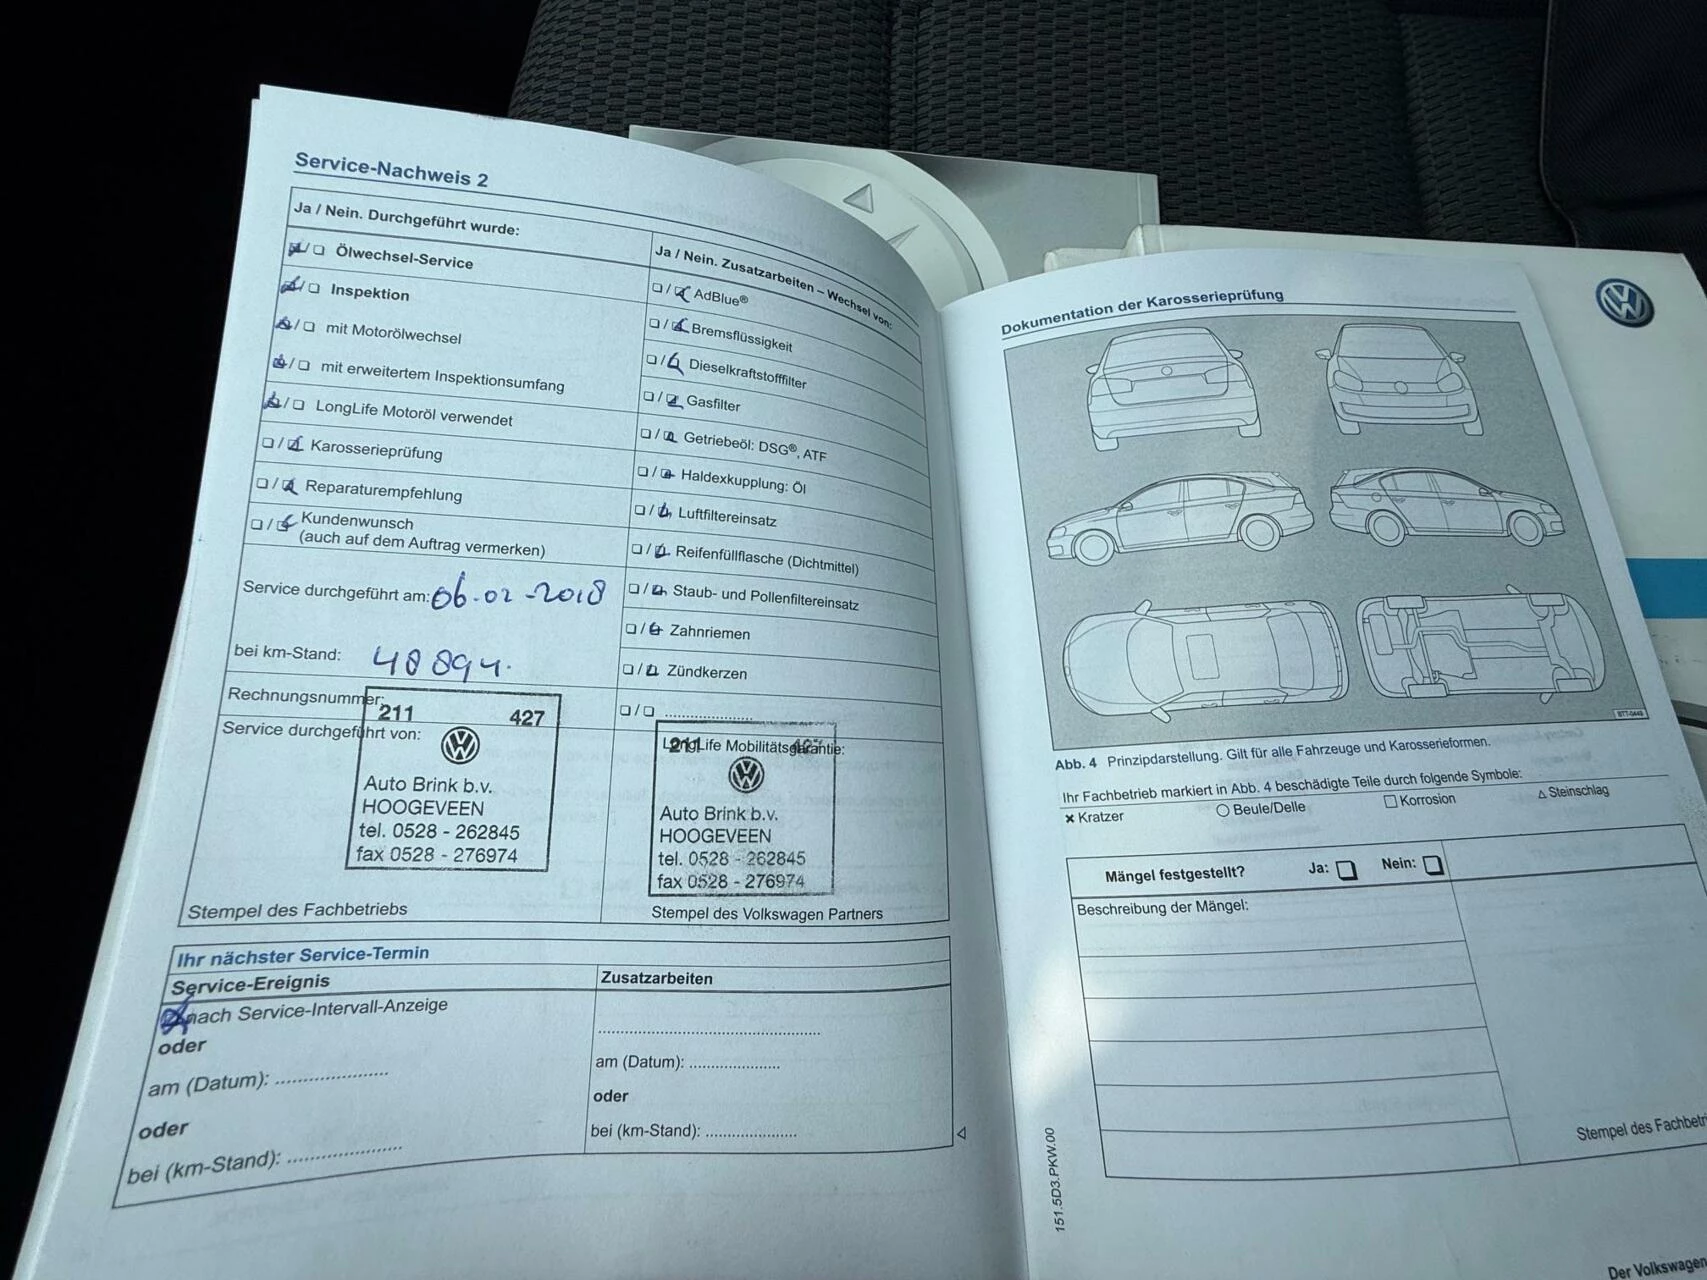 Service-Nachweis 2
Ja / Nein. Durchgeführt wurde:
Ölwechsel-Service
Inspektion
mit Motorölwechsel
mit erweitertem Inspektionsumfang
LongLife Motoröl verwendet
Karosserieprüfung
Reparaturempfehlung
Kundenwunsch
(auch auf dem Auftrag vermerken)
Service durchgeführt am: 06-02-2018
bei km-Stand: 48894.
Rechnungsnummer:
Service durchgeführt von:
211 427
Auto Brink b.v.
HOOGEVEEN
tel. 0528 - 262845
fax 0528 - 276974
Stempel des Fachbetriebs
Ja / Nein. Zusatzarbeiten – Wechsel von:
AdBlue®
Bremsflüssigkeit
Dieselkraftstofffilter
Gasfilter
Getriebeöl: DSG®, ATF
Haldexkupplung: Öl
Luftfiltereinsatz
Reifenfüllflasche (Dichtmittel)
Staub- und Pollenfiltereinsatz
Zahnriemen
Zündkerzen
LongLife Mobilitätsgarantie:
211
Auto Brink b.v.
HOOGEVEEN
tel. 0528 - 262845
fax 0528 - 276974
Stempel des Volkswagen Partners
Ihr nächster Service-Termin
Service-Ereignis
nach Service-Intervall-Anzeige
oder
am (Datum): ....................
oder
bei (km-Stand): ....................
Zusatzarbeiten
am (Datum): ....................
oder
bei (km-Stand): ....................
Dokumentation der Karosserieprüfung
BTT-0449
Abb. 4 Prinzipdarstellung. Gilt für alle Fahrzeuge und Karosserieformen.
Ihr Fachbetrieb markiert in Abb. 4 beschädigte Teile durch folgende Symbole:
× Kratzer ○ Beule/Delle □ Korrosion △ Steinschlag
Mängel festgestellt? Ja: Nein:
Beschreibung der Mängel:
Stempel des Fachbetri
151.5D3.PKW.00
Der Volkswagen